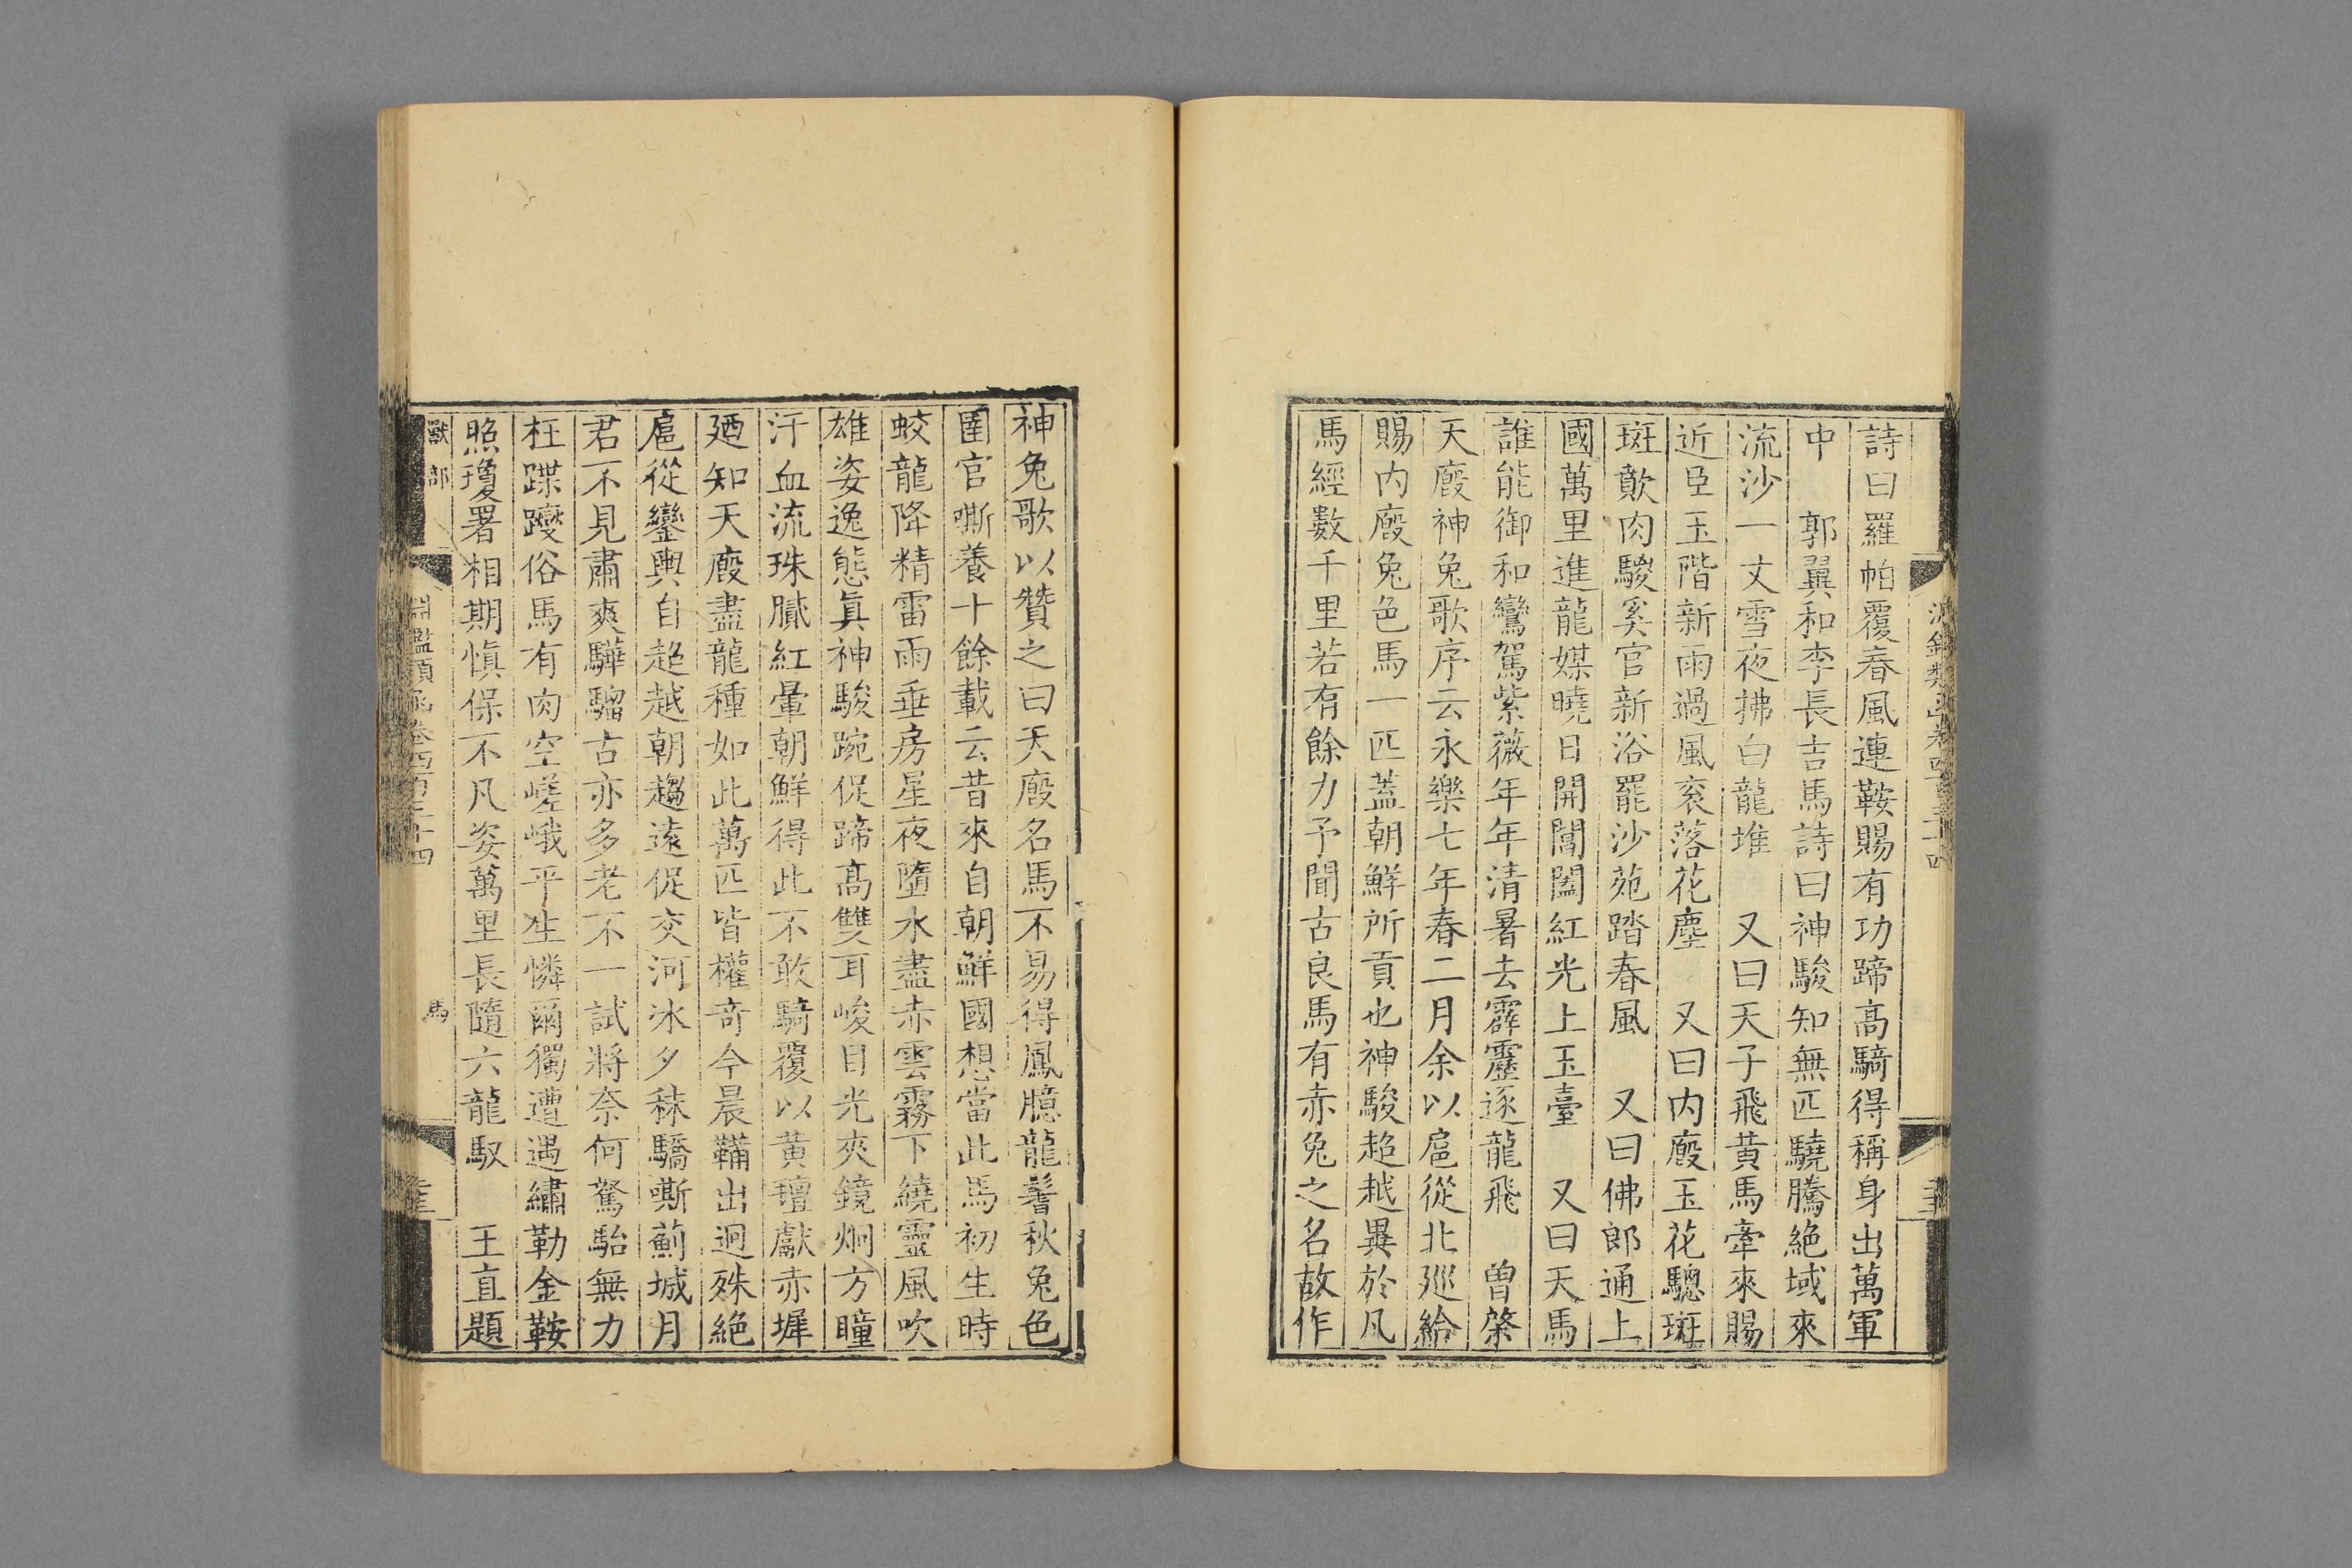 詩曰羅帕覆春風連鞍賜有功蹄高騎得稱身出萬軍
中　郭翼和李長吉馬詩曰神駿知無匹驍騰絶域來
流沙一丈雪夜拂白龍堆　又曰天子飛黃馬牽來賜
近臣玉階新雨過風袞落花塵　又曰内廄玉花驄斑
斑歕肉駿奚官新浴罷沙苑踏春風　又曰佛郎通上
國萬里進龍媒曉日開閶闔紅光上玉臺　又曰天馬
誰能御和鸞駕紫薇年年清暑去霹靂逐龍飛　曾棨
天廄神兔歌序云永樂七年春二月余以扈從北巡給
賜内廄兔色馬一匹蓋朝鮮所貢也神駿超越異於凡
馬經數千里若有餘力予聞古良馬有赤兔之名故作
神兔歌以贊之曰天廄名馬不易得鳳臆龍鬐秋兔色
圉官嘶養十餘載云昔來自朝鮮國想當此馬初生時
蛟龍降精雷雨垂房星夜墮水盡赤雲霧下繞靈風吹
雄姿逸態真神駿踠促蹄高雙耳峻目光夾鏡炯方瞳
汗血流珠膩紅暈朝鮮得此不敢騎覆以黃氊獻赤墀
廼知天廄盡龍種如此萬匹皆權奇今晨鞴出迥殊絶
扈從鑾輿自超越朝趨遠促交河冰夕秣驕嘶薊城月
君不見肅爽驊騮古亦多老不一試將奈何駑駘無力
枉蹀躞俗馬有肉空嵯峨平生憐爾獨遭遇繡勒金鞍
照瓊署相期慎保不凡姿萬里長隨六龍馭　王直題
獸部
淵鑑類函卷四百三十四
馬